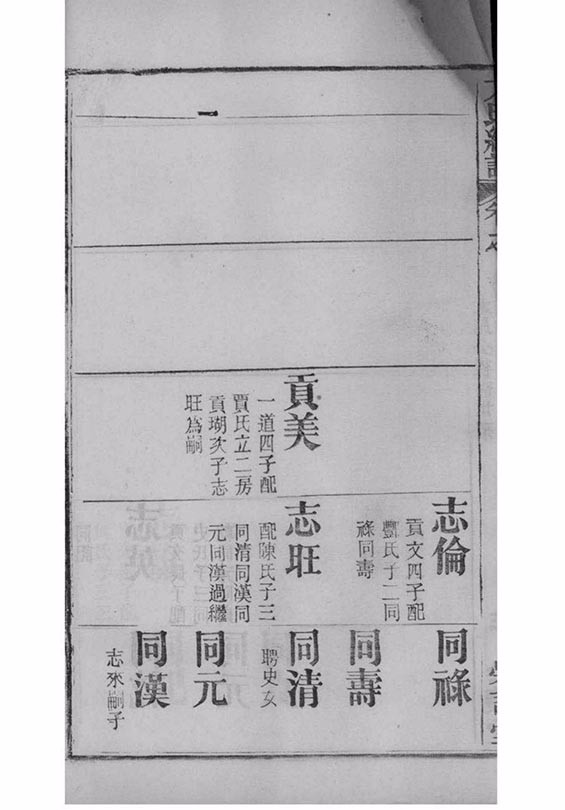 貢美
一道四子配
賈氏立二房
貢瑚次子志
旺為嗣
志倫
貢文四子配
酆氏子二同
祿同壽
志旺
配陳氏子三
同清同漢同
元同漢過繼
同祿
同壽
同清
聘史女
同元
同漢
志來嗣子